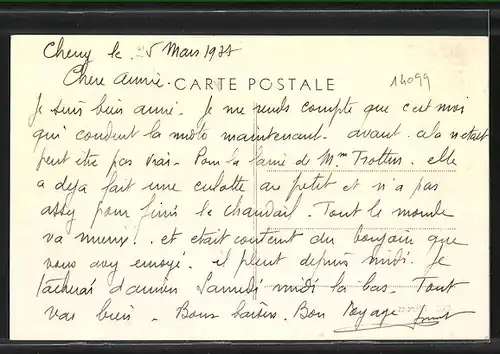 le 25 Mars 1935
Chère Annie. CARTE POSTALE 14099
Je suis bien arrivé. Je me rends compte que c'est moi
qui conduit la moto maintenant. avant cela n'était
peut être pas vrai. Pour la laine de Mme Trottin. elle
a deja fait une culotte au petit et n'a pas
assez pour finir le chandail. Tout le monde
va mieux.. et était content du que
vous avez envoyé. il pleut depuis midi. Je
tacherai d'arriver Samedi midi la bas. Tout
va bien. Bons baisers. Bon Voyage